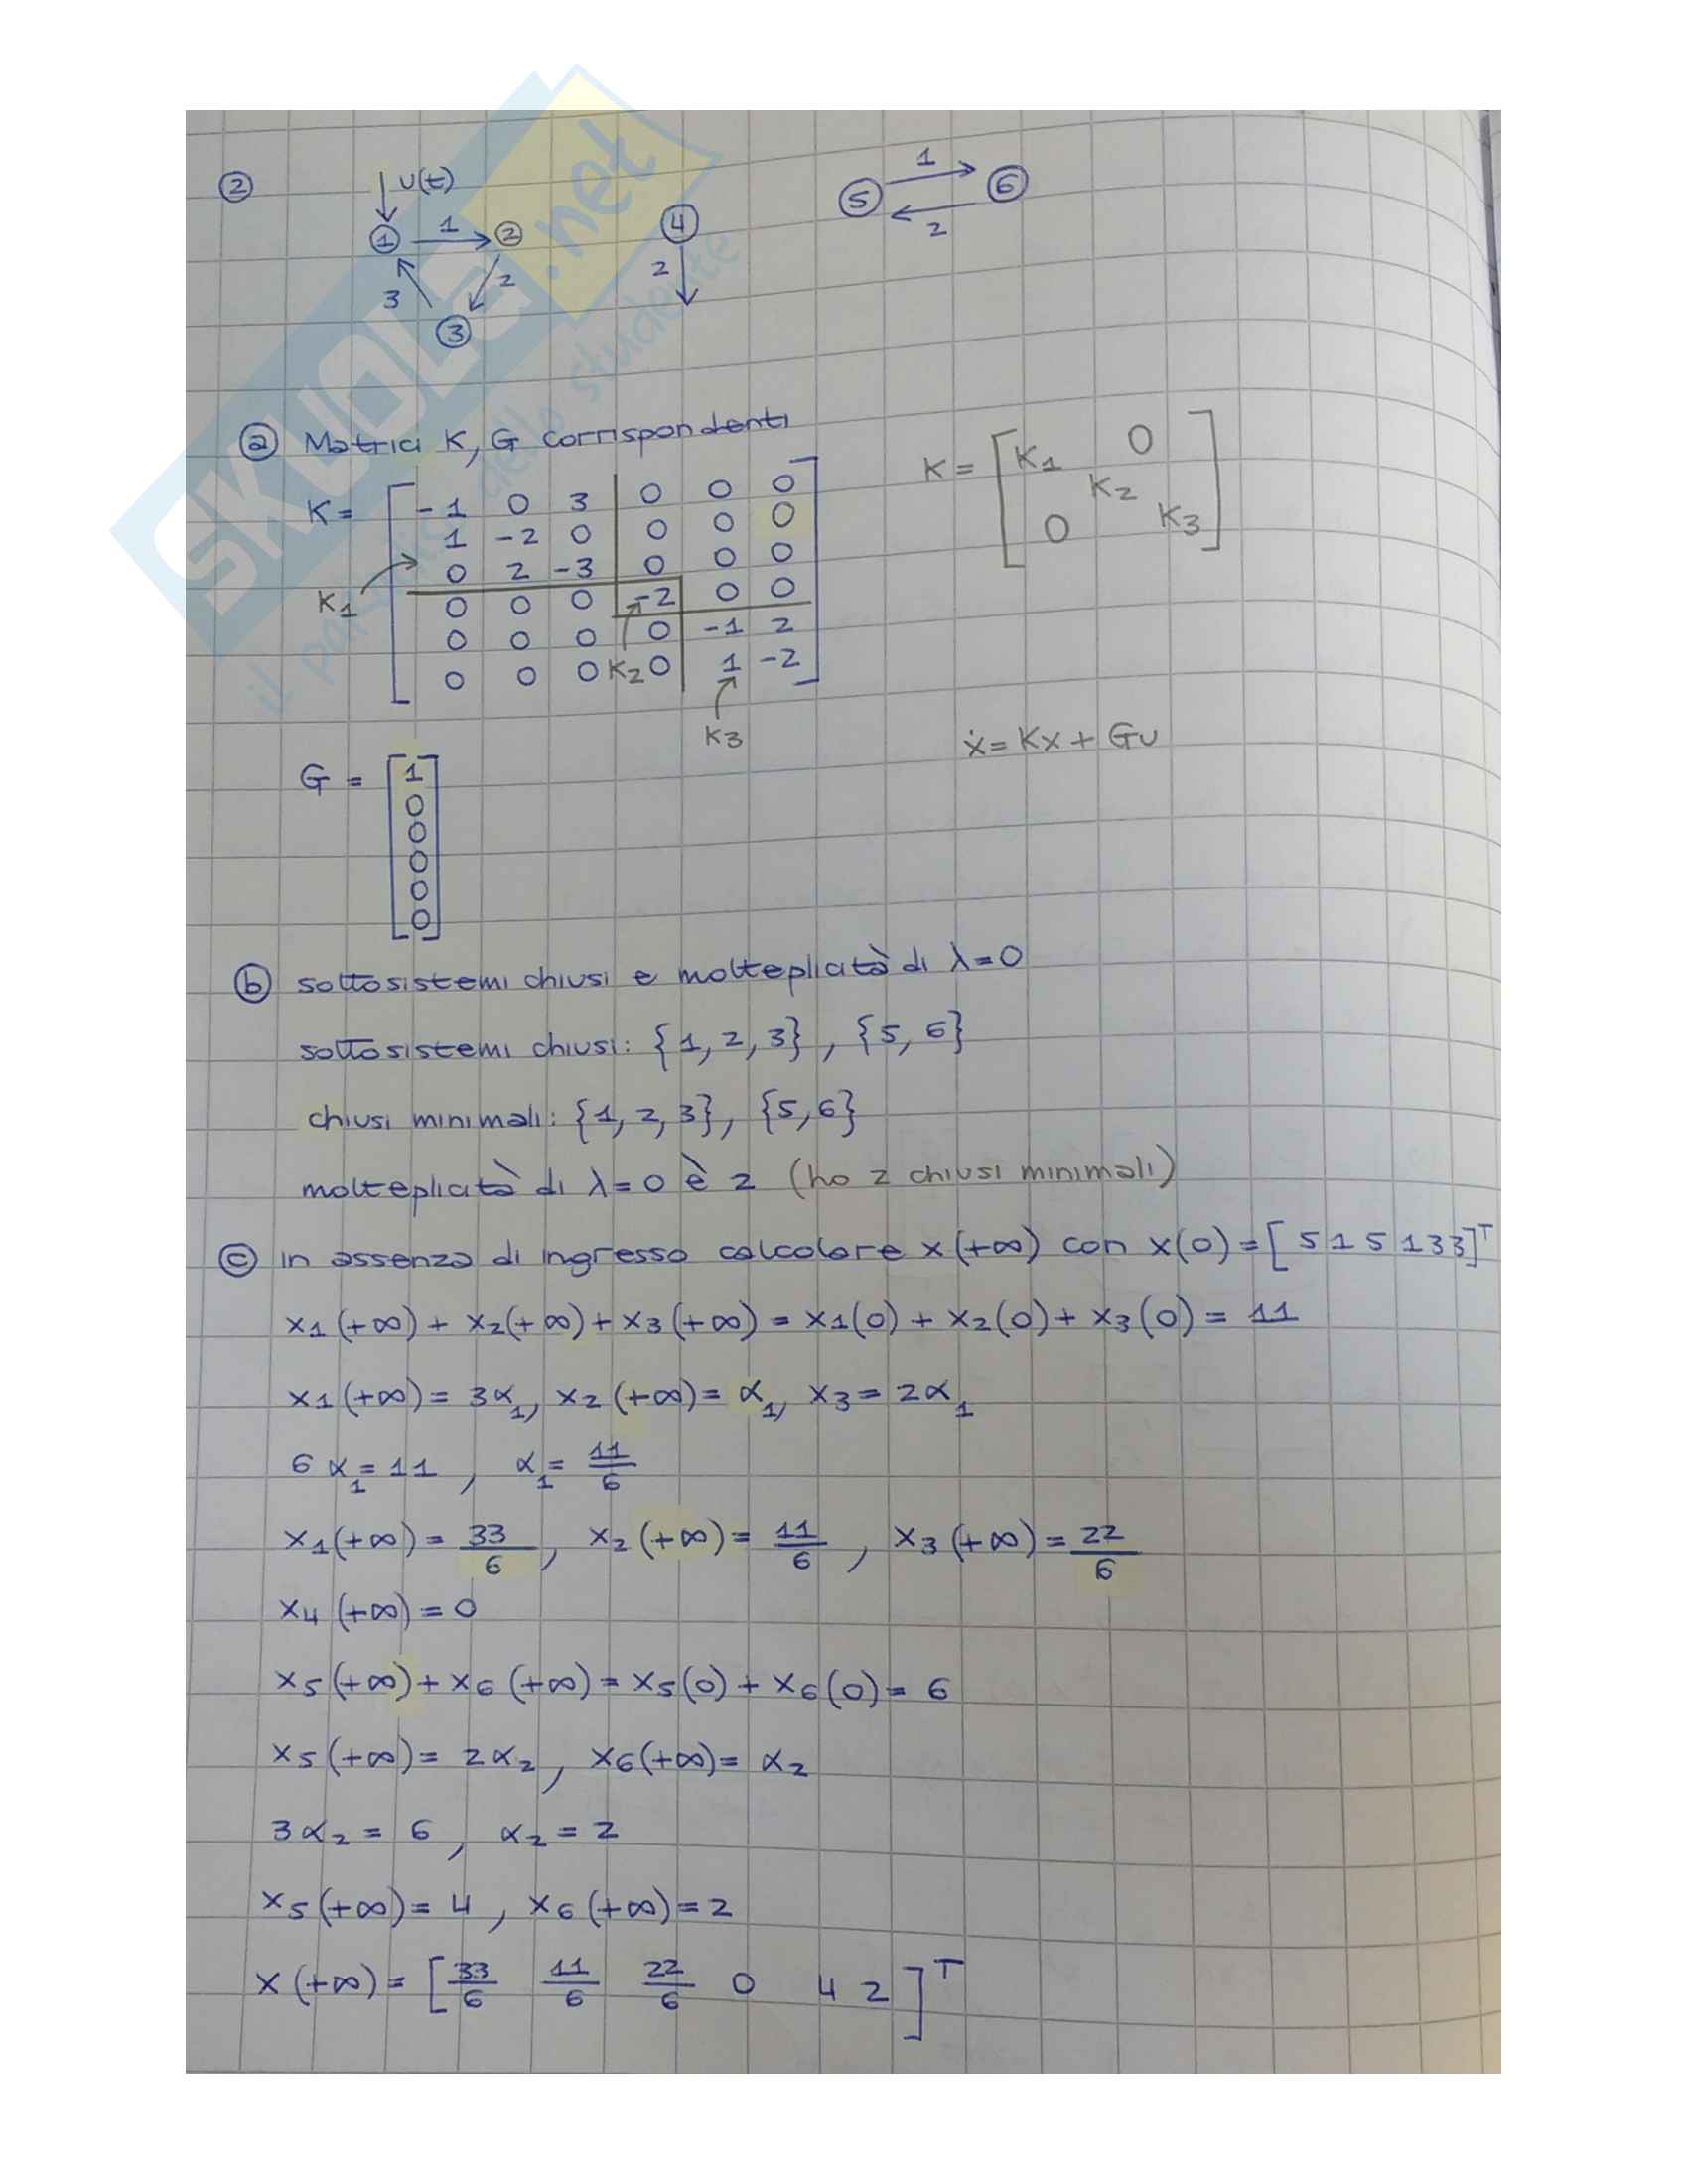 ② u(t)
① 1 ② ④ ⑤ 1 ⑥
3 2 2 2
③
ⓐ Matrici K, G corrispondenti
K = [ -1 0 3 0 0 0
1 -2 0 0 0 0
0 2 -3 0 0 0
0 0 0 -2 0 0
0 0 0 0 -1 2
0 0 0 0 1 -2 ]
K1
K2
K3
K = [ K1 0
K2
0 K3 ]
ẋ = Kx + Gu
G = [ 1
0
0
0
0
0 ]
ⓑ sottosistemi chiusi e molteplicità di λ=0
sottosistemi chiusi: {1, 2, 3}, {5, 6}
chiusi minimali: {1, 2, 3}, {5, 6}
molteplicità di λ=0 è 2 (ho 2 chiusi minimali)
ⓒ in assenza di ingresso calcolare x(+∞) con x(0) = [ 5 1 5 1 3 3 ]ᵀ
x1(+∞) + x2(+∞) + x3(+∞) = x1(0) + x2(0) + x3(0) = 11
x1(+∞) = 3α1, x2(+∞) = α1, x3 = 2α1
6α1 = 11, α1 = 11/6
x1(+∞) = 33/6, x2(+∞) = 11/6, x3(+∞) = 22/6
x4(+∞) = 0
x5(+∞) + x6(+∞) = x5(0) + x6(0) = 6
x5(+∞) = 2α2, x6(+∞) = α2
3α2 = 6, α2 = 2
x5(+∞) = 4, x6(+∞) = 2
x(+∞) = [ 33/6 11/6 22/6 0 4 2 ]ᵀ
SKUOLA.net
il portale dello studente